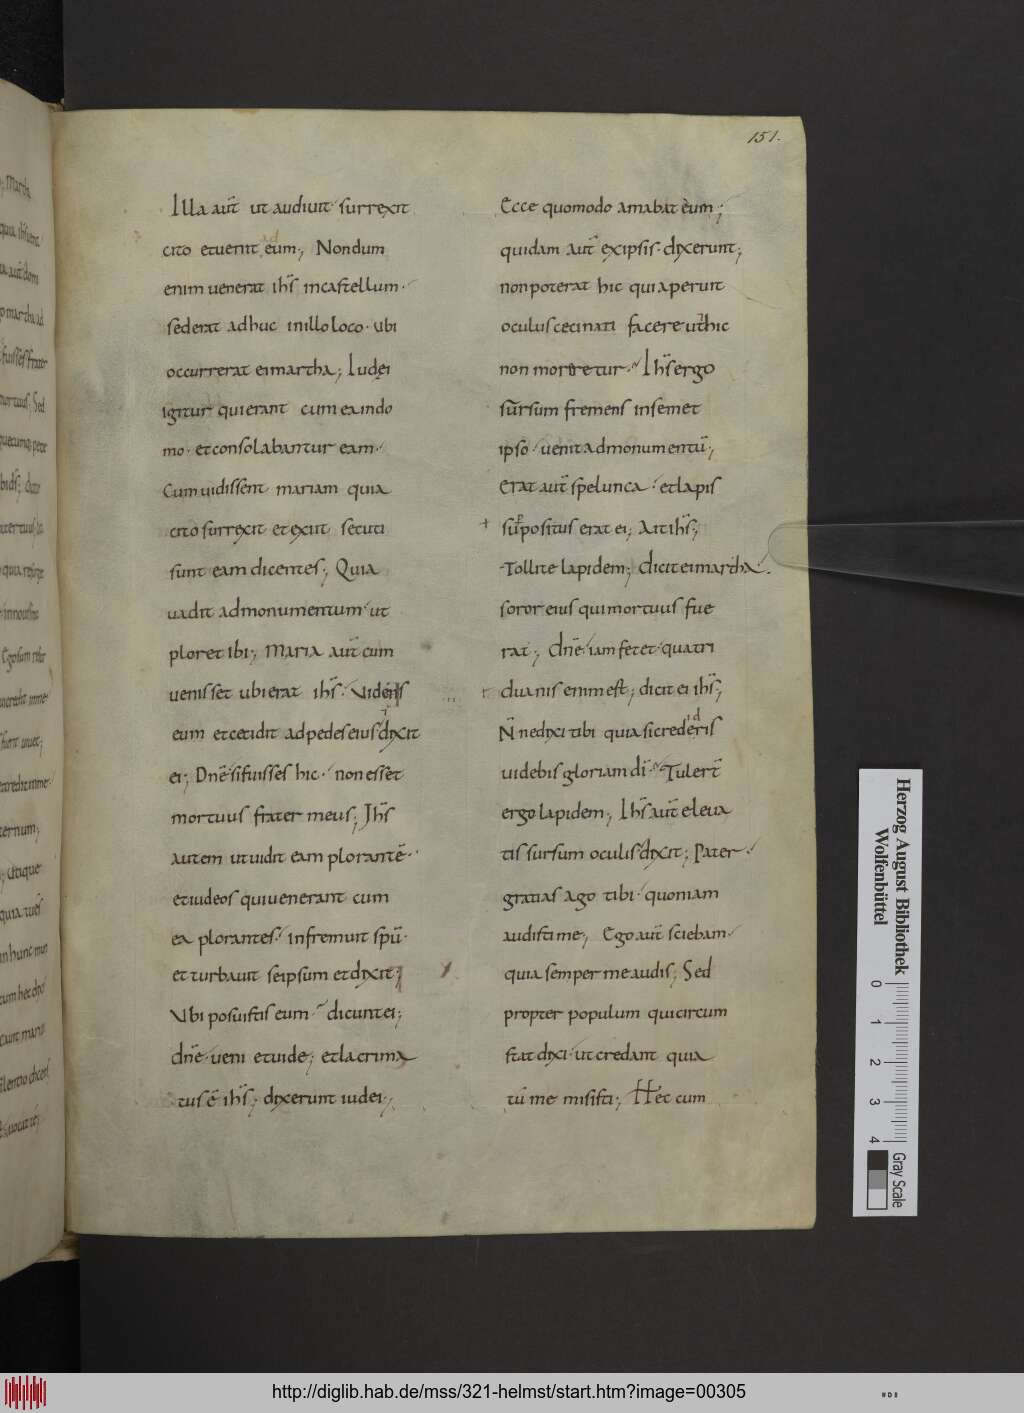 151.
Illa aut̄ ut audiuit· surrexit
cito et uenit ad eum; Nondum
enim uenerat ih̄s in castellum·
sederat adhuc in illo loco· ubi
occurrerat ei martha; Iudęi
igitur qui erant cum ea in do
mo· et consolabantur eam·
Cum uidissent mariam quia
cito surrexit et exiit secuti
sunt eam dicentes; Quia
uadit ad monumentum· ut
ploret ibi; Maria aut̄ cum
uenisset ubi erat ih̄s· Videns
eum et cecidit ad pedes eius & dixit
ei; Dn̄e si fuisses hic· non esset
mortuus frater meus; Ih̄s
autem ut uidit eam plorantē·
et iudeos qui uenerant cum
ea plorantes· infremuit sp̄u·
et turbauit se ipsum et dixit;
Vbi posuistis eum· dicunt ei;
dn̄e· ueni et uide; et lacrima
tus ē ih̄s; dixerunt iudei·
Ecce quomodo amabat eum;
quidam aut̄ ex ipsis· dixerunt;
non poterat hic qui aperuit
oculus ceci nati facere ut hic
non moreretur· Ih̄s ergo
rursum fremens in semet
ipso· uenit ad monumentū;
Erat aut̄ spelunca· et lapis
sup̄positus erat ei; Ait ih̄s;
Tollite lapidem; dicit ei martha
soror eius qui mortuus fue
rat; dn̄e· iam fetet· quatri
duanis enim est; dicit ei ih̄s;
N̄ne dixi tibi quia si credideris
uidebis gloriam dī· Tulert̄
ergo lapidem; Ih̄s aut̄ eleua
tis sursum oculis dixit; Pater
gratias ago tibi· quoniam
audisti me; Ego aut̄ sciebam·
quia semper me audis; Sed
propter populum qui circum
stat dixi· ut credant quia
tū me misisti; Hęc cum
Herzog August Bibliothek
Wolfenbüttel
0 1 2 3 4
Gray Scale
http://diglib.hab.de/mss/321-helmst/start.htm?image=00305